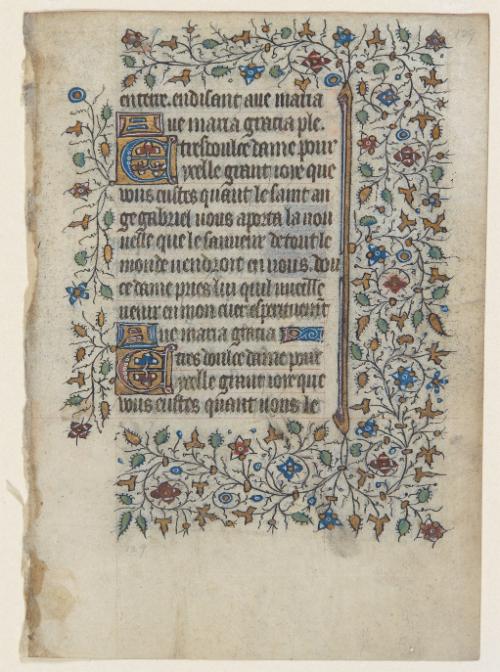 en terre. en disant aue maria
Aue maria gracia ple.
E tresdoulce dame pour
ycelle grant ioie que
vous eustes quant le saint an
ge gabriel vous aporta la nou
uelle que le sauueur de tout le
monde vendroit en vous. doul
ce dame pries lui quil vueille
venir en mon cuer espirituem̃t
Aue maria gracia
E tres doulce dame pour
ycelle grant ioie que
vous eustes quant vous le
129
129